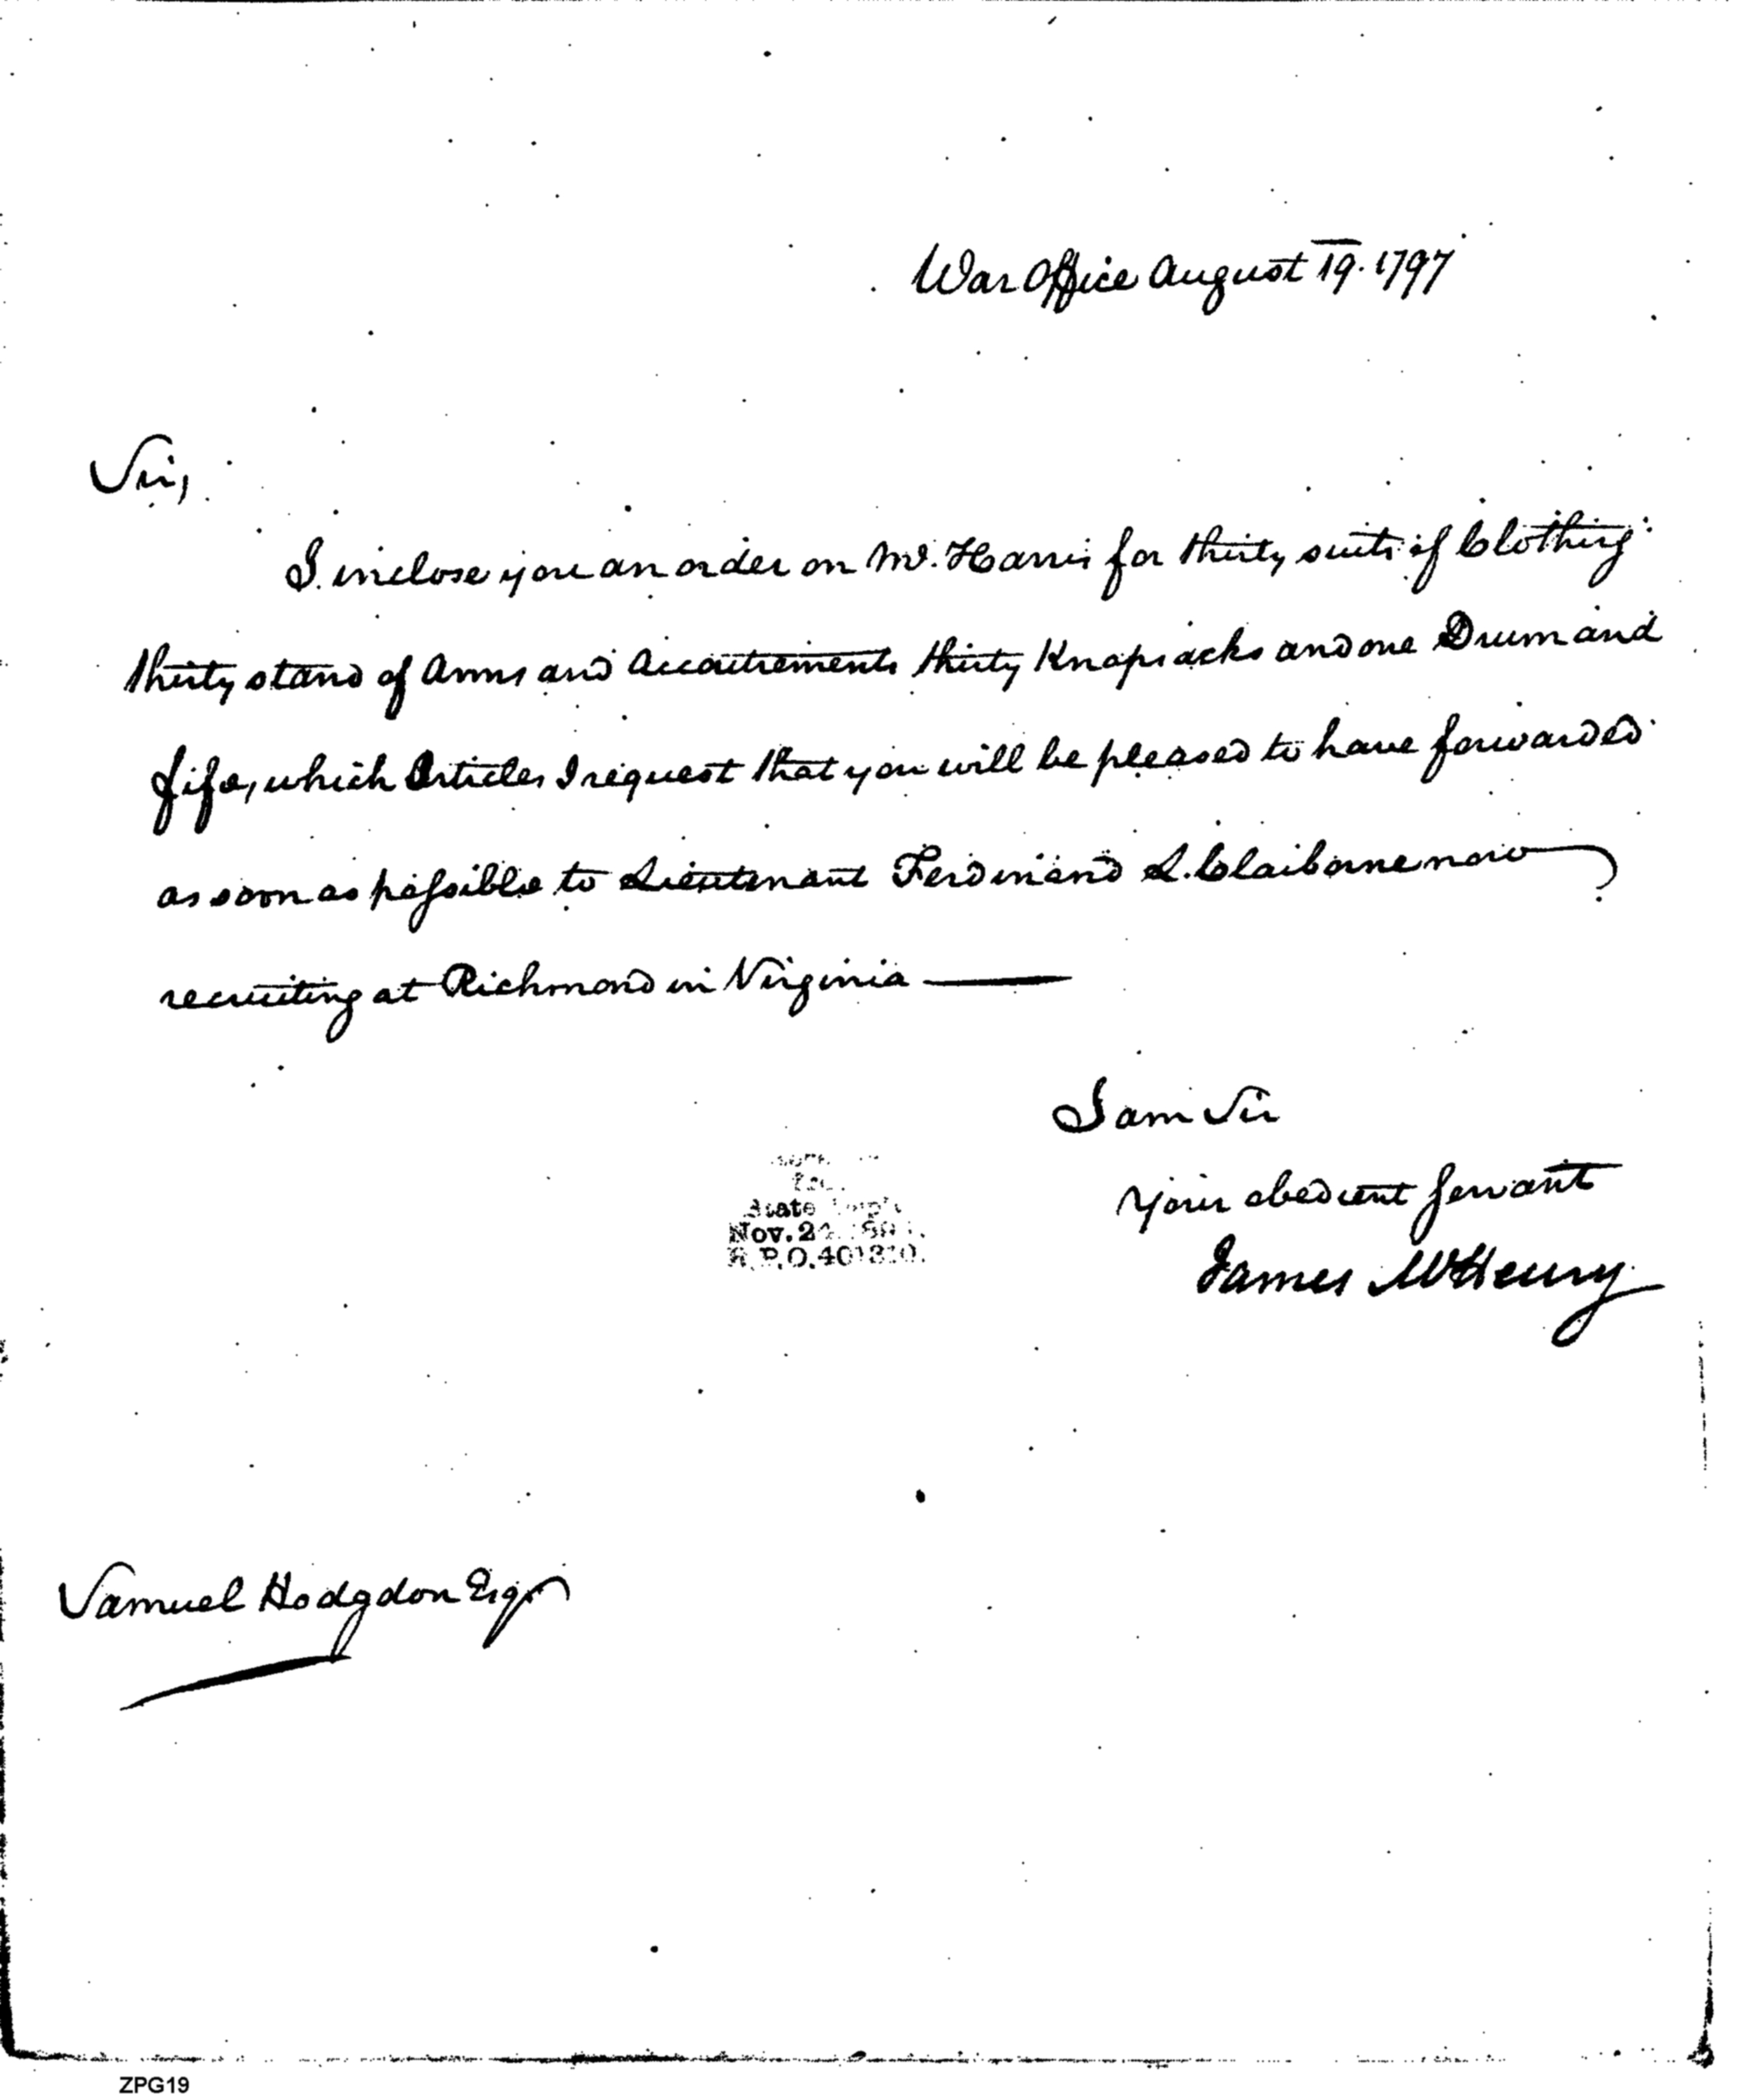 War Office August 19. 1797
Sir,
I inclose you an order on Mr. Harris for thirty suits of Clothing
thirty stand of Arms and Accoutrements thirty Knapsacks and one Drum and
fife, which Articles I request that you will be pleased to have forwarded
as soon as possible to Lieutenant Ferdinand L. Claiborne now
recruiting at Richmond in Virginia —
I am Sir
Your obedient Servant
James McHenry
State
Nov. 2
R.P.O. 401310.
Samuel Hodgdon Esqr
ZPG19